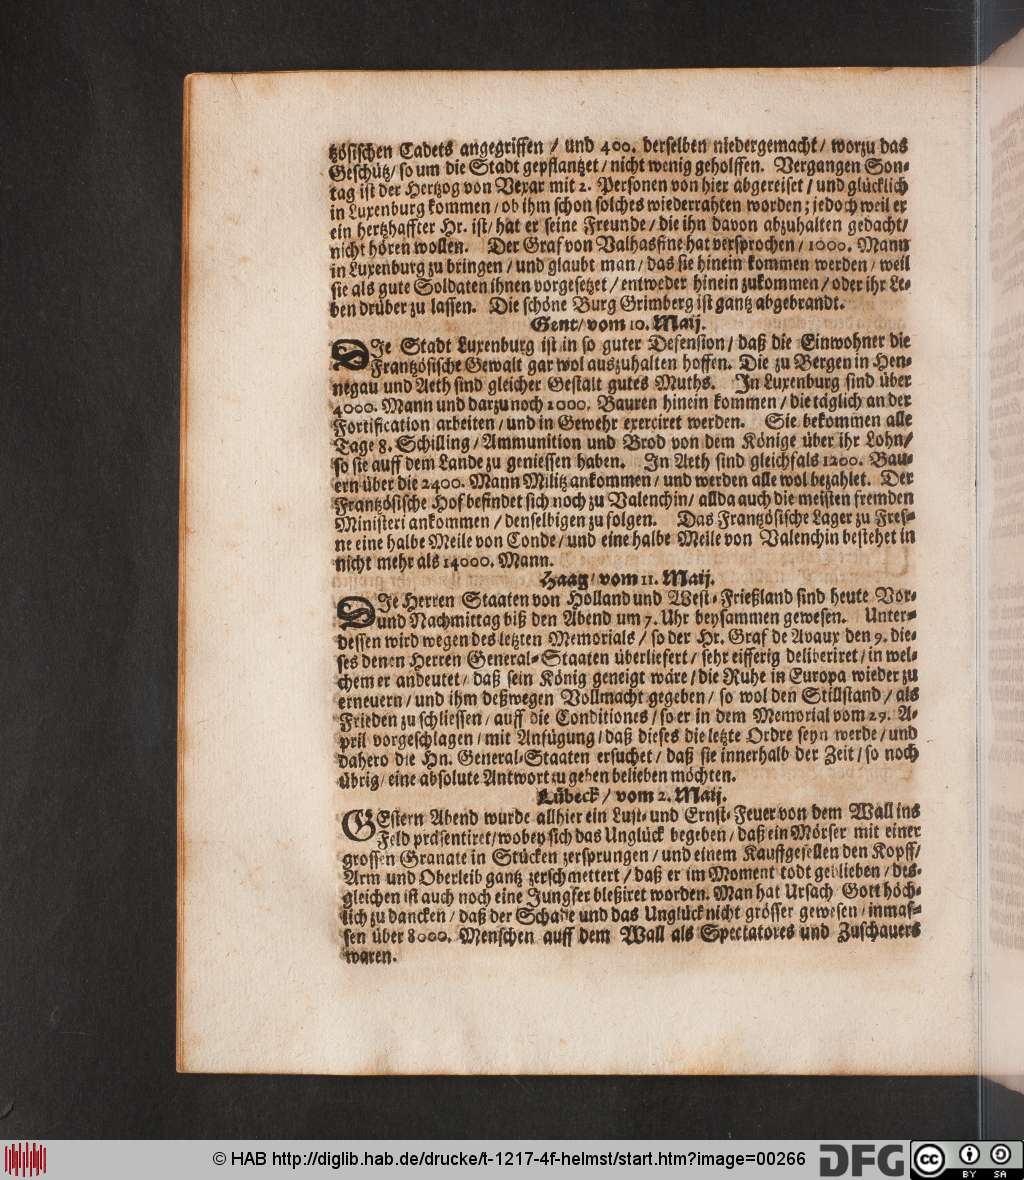 tzösischen Cadets angegriffen / und 400. derselben niedergemacht / worzu das
Geschütz / so um die Stadt gepflantzet / nicht wenig geholffen. Vergangen Son-
tag ist der Hertzog von Vexar mit 2. Personen von hier abgereiset / und glücklich
in Luxenburg kommen / ob ihm schon solches wiederrahten worden; jedoch weil er
ein hertzhaffter Hr. ist / hat er seine Freunde / die ihn davon abzuhalten gedacht /
nicht hören wollen. Der Graf von Valhasfine hat versprochen / 1000. Mann
in Luxenburg zu bringen / und glaubt man / das sie hinein kommen werden / weil
sie als gute Soldaten ihnen vorgesetzet / entweder hinein zukommen / oder ihr Le-
ben drüber zu lassen. Die schöne Burg Grimberg ist gantz abgebrandt.
Gent / vom 10. Maij.
DIe Stadt Luxenburg ist in so guter Defension / daß die Einwohner die
Frantzösische Gewalt gar wol auszuhalten hoffen. Die zu Bergen in Hen-
negau und Aeth sind gleicher Gestalt gutes Muths. In Luxenburg sind über
4000. Mann und darzu noch 1000. Bauren hinein kommen / die täglich an der
Fortification arbeiten / und in Gewehr exerciret werden. Sie bekommen alle
Tage 8. Schilling / Ammunition und Brod von dem Könige über ihr Lohn /
so sie auff dem Lande zu geniessen haben. In Aeth sind gleichfals 1200. Bau-
ern über die 2400. Mann Militz ankommen / und werden alle wol bezahlet. Der
Frantzösische Hof befindet sich noch zu Valenchin / allda auch die meisten fremden
Ministeri ankommen / denselbigen zu folgen. Das Frantzösische Lager zu Fres-
ne eine halbe Meile von Conde / und eine halbe Meile von Valenchin bestehet in
nicht mehr als 14000. Mann.
Haag / vom 11. Maij.
DIe Herren Staaten von Holland und West-Frießland sind heute Vor-
und Nachmittag biß den Abend um 7. Uhr beysammen gewesen. Unter-
dessen wird wegen des letzten Memorials / so der Hr. Graf de Avaux den 9. die-
ses denen Herren General-Staaten überliefert / sehr eifferig deliberiret / in wel-
chem er andeutet / daß sein König geneigt wäre / die Ruhe in Europa wieder zu
erneuern / und ihm deßwegen Vollmacht gegeben / so wol den Stillstand / als
Frieden zu schliessen / auff die Conditiones / so er in dem Memorial vom 29. A-
pril vorgeschlagen / mit Anfügung / daß dieses die letzte Ordre seyn werde / und
dahero die Hn. General-Staaten ersuchet / daß sie innerhalb der Zeit / so noch
übrig / eine absolute Antwort zu geben belieben möchten.
Lübeck / vom 2. Maij.
GEstern Abend wurde allhier ein Lust- und Ernst-Feuer von dem Wall ins
Feld präsentiret / wobey sich das Unglück begeben / daß ein Mörser mit einer
grossen Granate in Stücken zersprungen / und einem Kauffgesellen den Kopff /
Arm und Oberleib gantz zerschmettert / daß er im Moment todt geblieben / des-
gleichen ist auch noch eine Jungfer bleßiret worden. Man hat Ursach Gott höch-
lich zu dancken / daß der Schade und das Unglück nicht grösser gewesen / inmas-
sen über 8000. Menschen auff dem Wall als Spectatores und Zuschauers
waren.
© HAB http://diglib.hab.de/drucke/t-1217-4f-helmst/start.htm?image=00266
DFG
cc BY SA